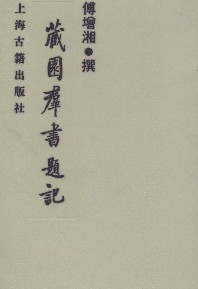 傅增湘●撰
藏園羣書題記
上海古籍出版社